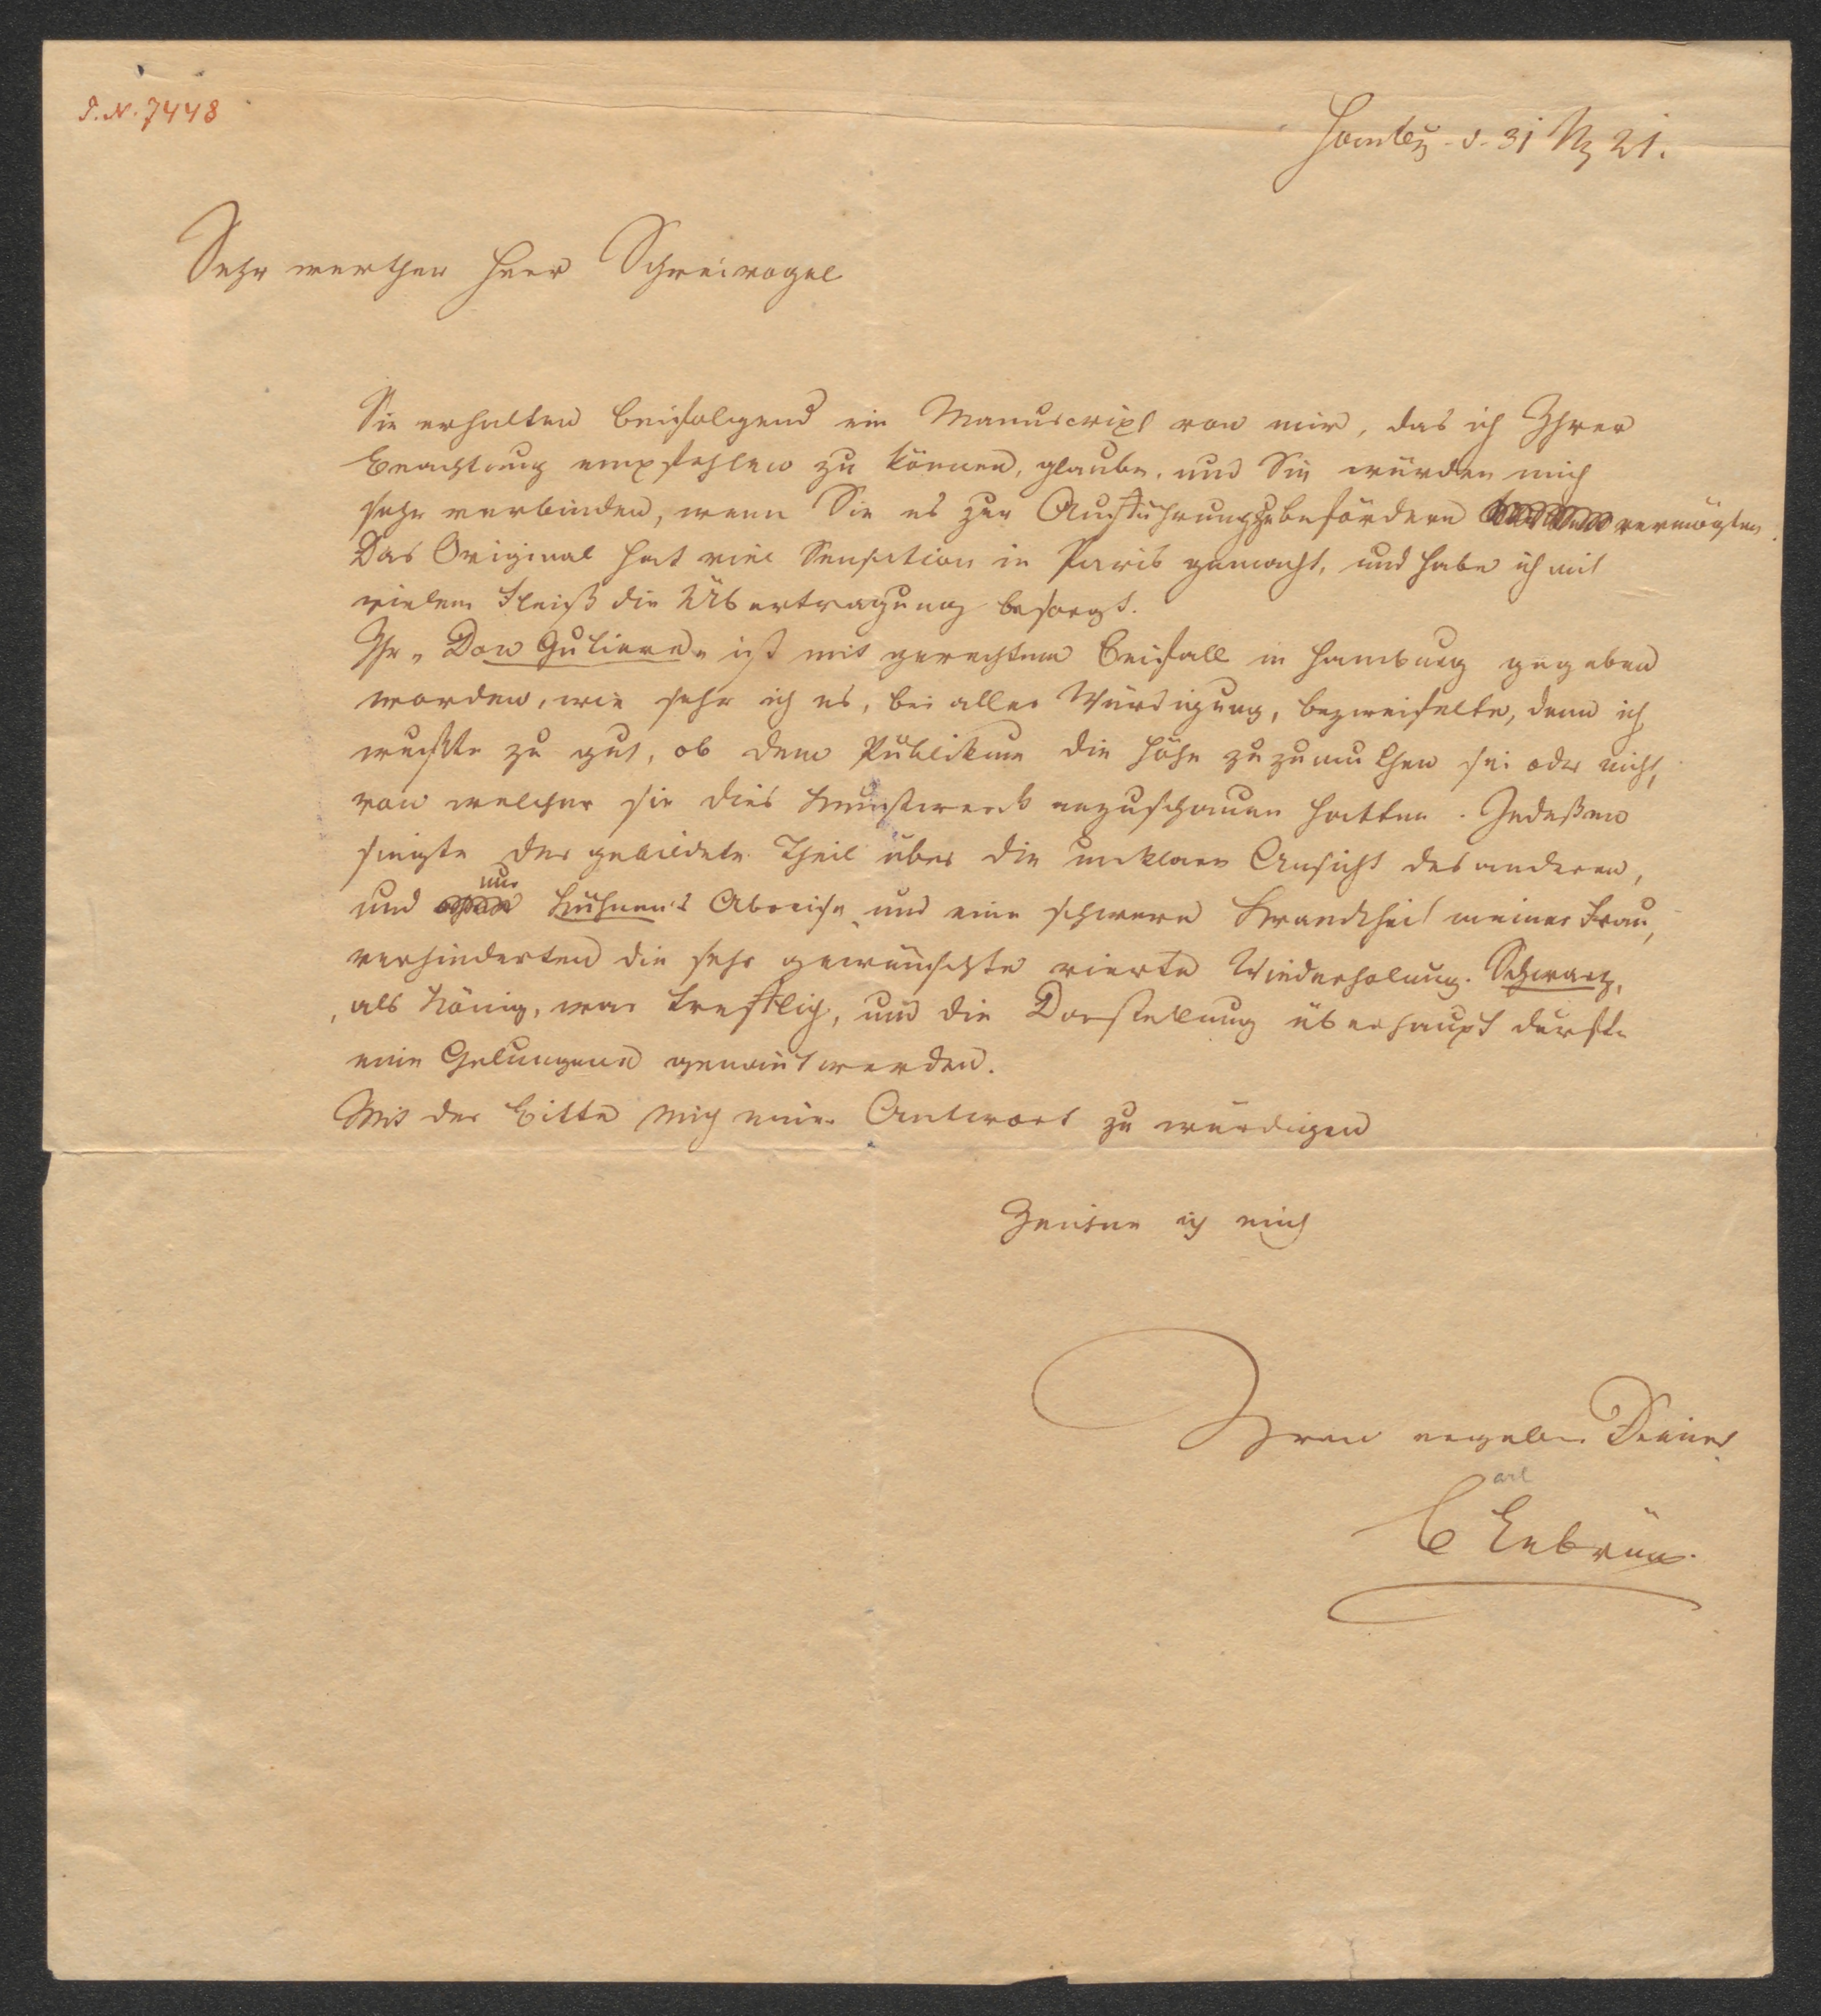 I.N. 7448
Hambg. d. 31 Mz 21.
Sehr werther Herr Schreivogel
Sie erhalten beifolgend ein Manuscript von mir, das ich Ihrer
Beachtung empfehlen zu können, glaube, und Sie würden mich
sehr verbinden, wenn Sie es zur Aufführung zu befördern vermögten.
Das Original hat viel Sensation in Paris gemacht, und habe ich mit
vielem Fleiß die Übertragung besorgt.
Ihr „Don Gutierre" ist mit gerechtem Beifall in Hamburg gegeben
worden, wie sehr ich es, bei aller Würdigung, bezweifelte, denn ich
wußte zu gut, ob dem Publikum die Höhe zuzumuthen sei oder nicht,
von welcher sie dies Kunstwerk anzuschauen hatten. Indeßen
siegte der gebildete Theil über die unklare Ansicht des anderen,
und nur Kühne's Abreise und eine schwere Krankheit meiner Frau,
verhinderten die sehr gewünschte vierte Wiederholung. Schwarz,
als König, war trefflich, und die Darstellung überhaupt durfte
eine Gelungene genannt werden.
Mit der Bitte mich einer Antwort zu würdigen
Zeichne ich mich
Ihren ergeben Diener
Carl Lebrün.